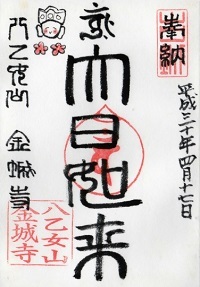 奉納
平成三十年四月十七日
大日如来
八乙女山 金城寺
八乙女山
金城寺